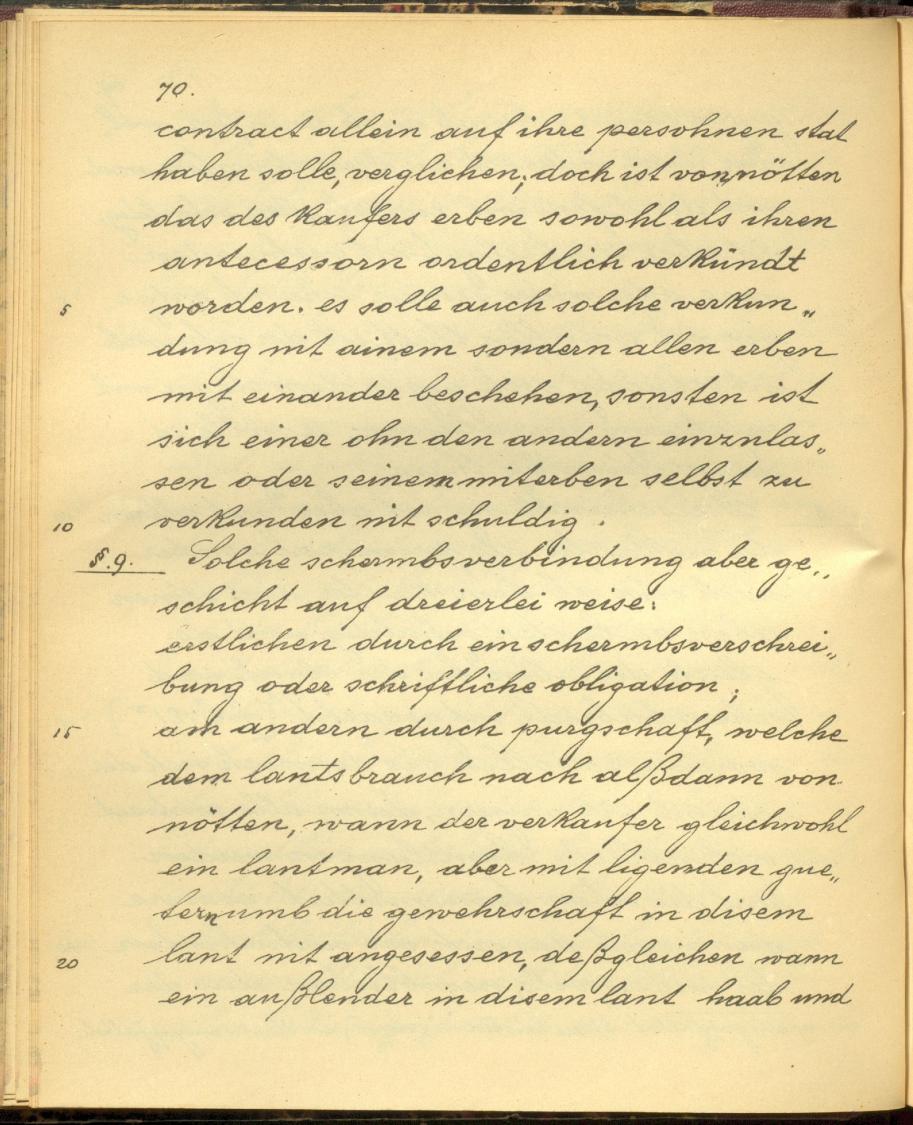 70.
contract allein auf ihre persohnen stat
haben solle, verglichen; doch ist von nötten
das des Kaufers erben sowohl als ihren
antecessorn ordentlich verkündt
5 worden. es solle auch solche verkun„
dung nit ainem sondern allen erben
mit einander beschehen, sonsten ist
sich einer ohn den andern einznlas„
sen oder seinem miterben selbst zu
10 verkunden nit schuldig.
§.9. Solche schermbsverbindung aber ge„
schicht auf dreierlei weise:
erstlichen durch ein schermbsverschrei„
bung oder schriftliche obligation;
15 am andern durch purgschaft, welche
dem lantsbrauch nach alßdann von
nötten, wann der verkaufer gleichwohl
ein lantman, aber mit ligenden gue„
tern umb die gewehrschaft in disem
20 lant nit angesessen, deßgleichen wann
ein außlender in disem lant haab und